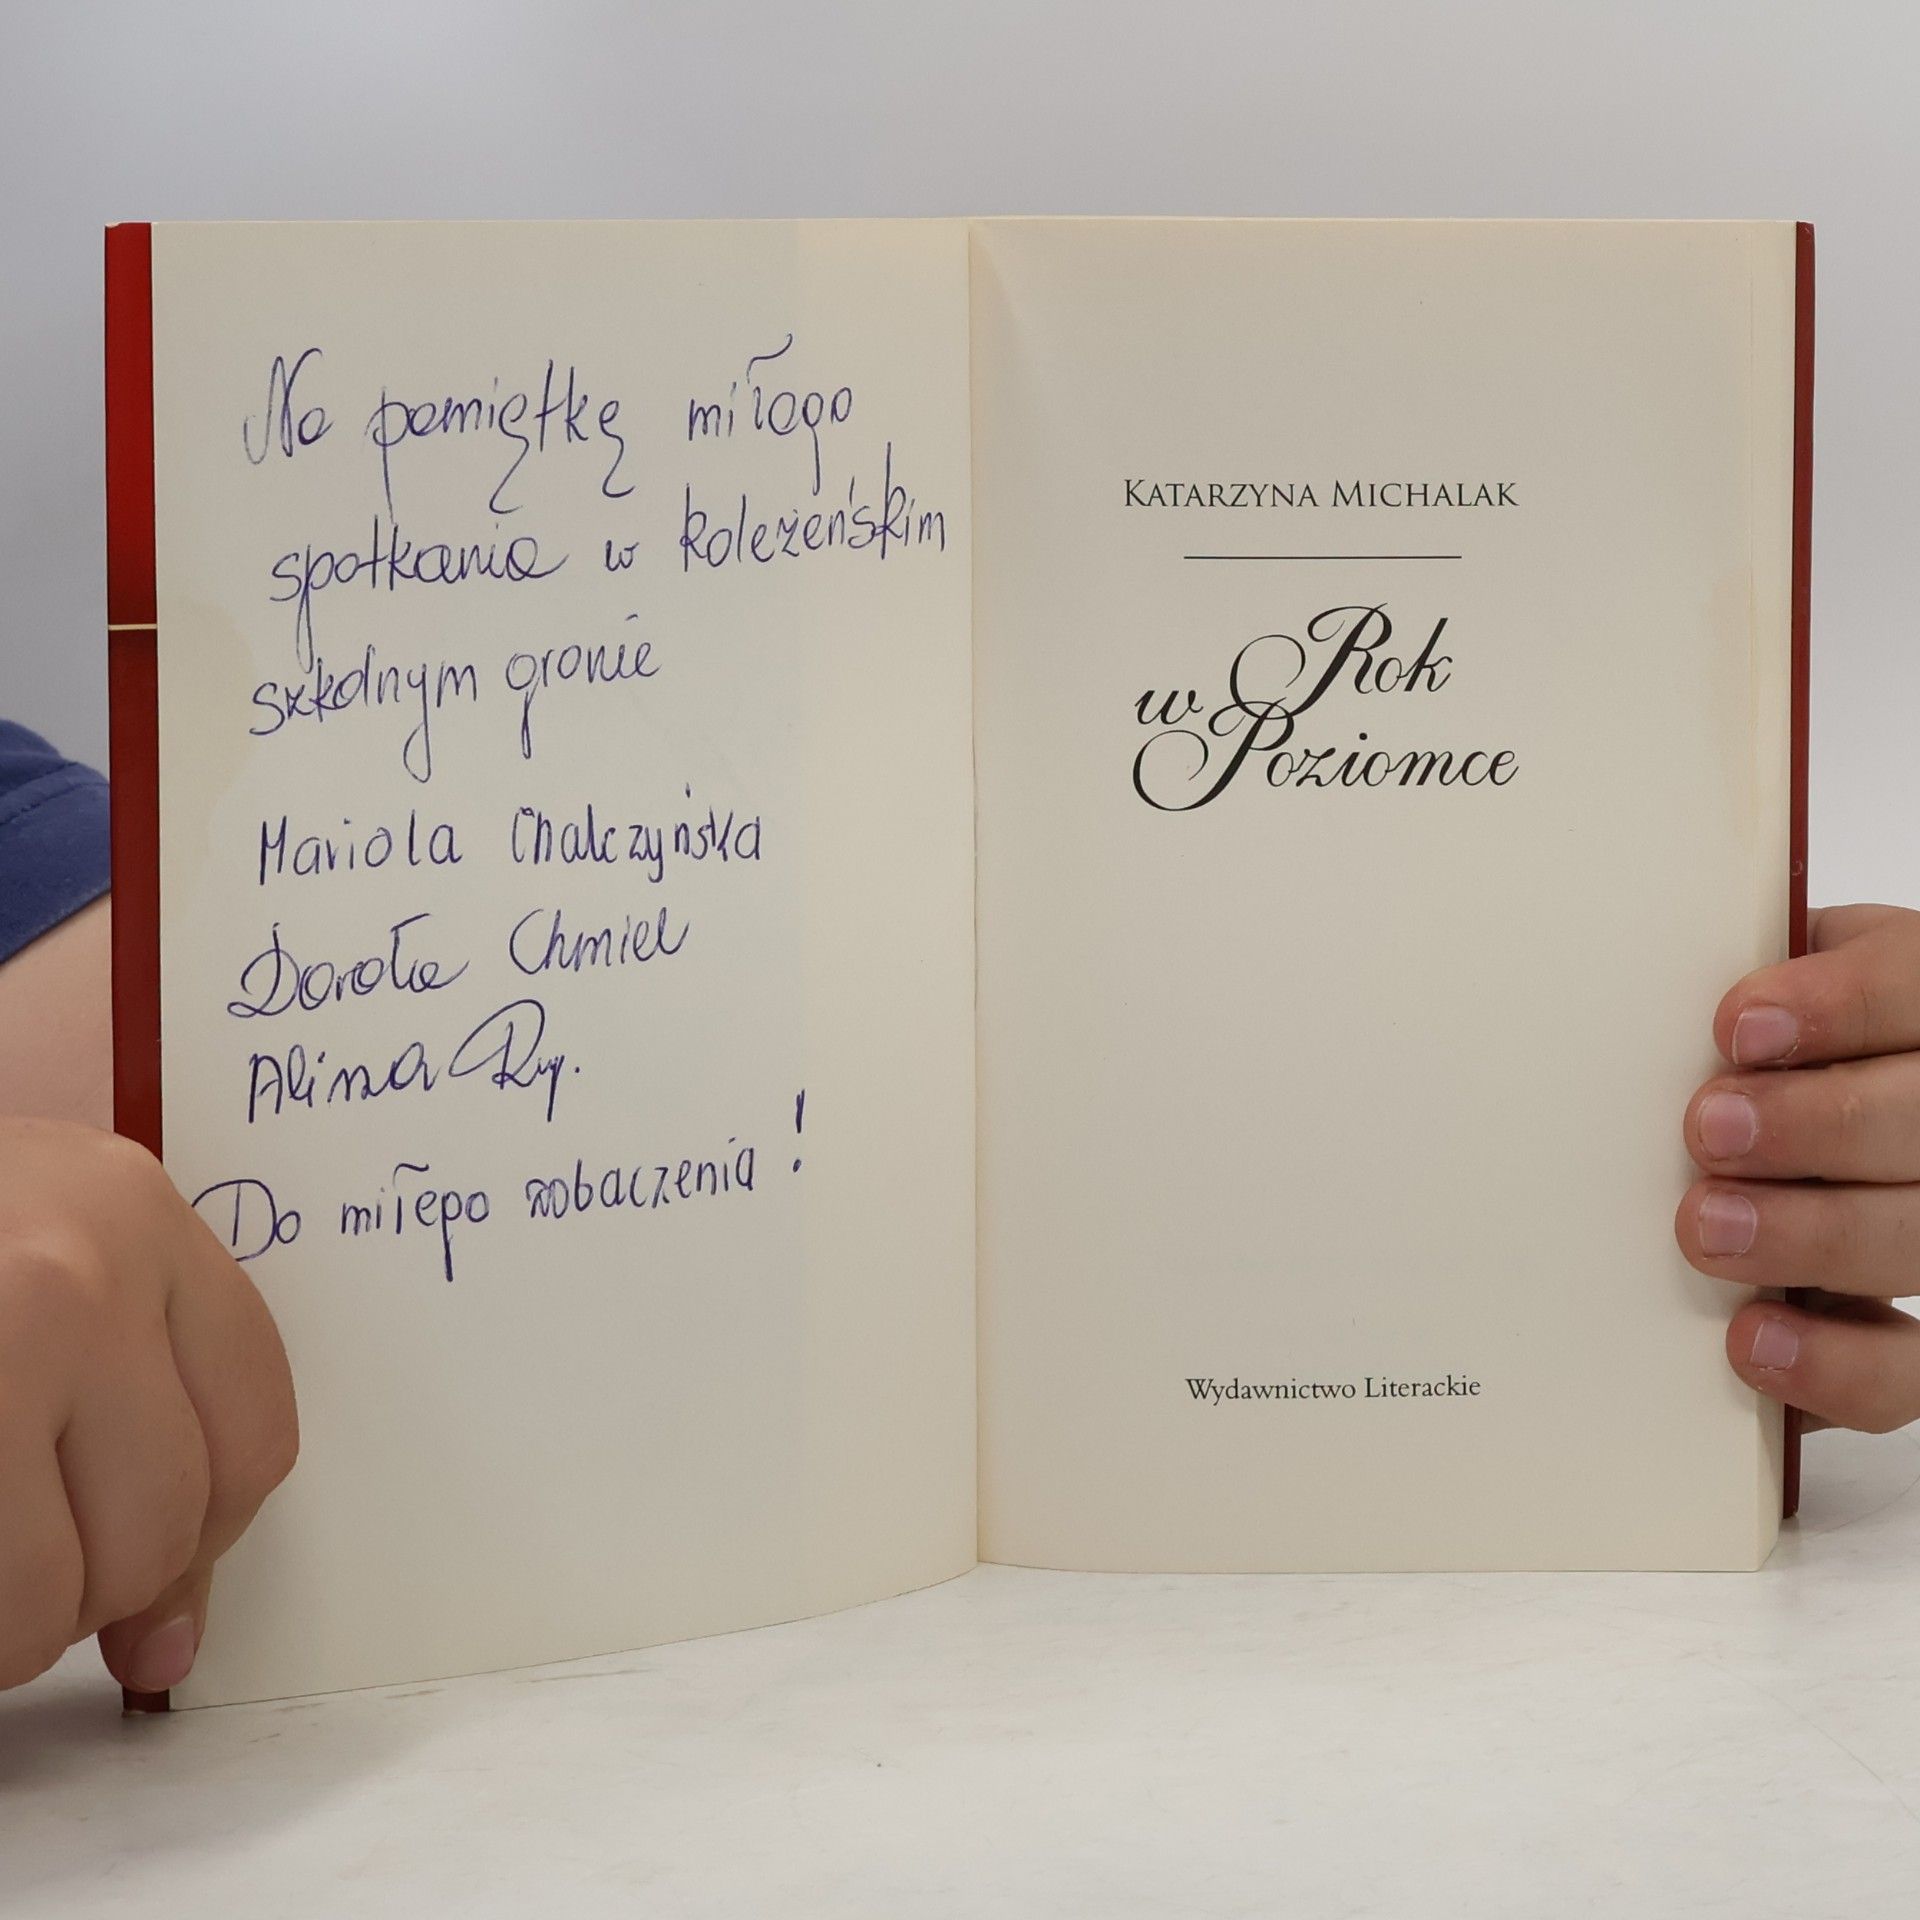 Na pamiątkę miłego
spotkania w koleżeńskim
szkolnym gronie
Mariola Chalczyńska
Dorota Chmiel
Alina
Do miłego zobaczenia!
KATARZYNA MICHALAK
Rok
w Poziomce
Wydawnictwo Literackie